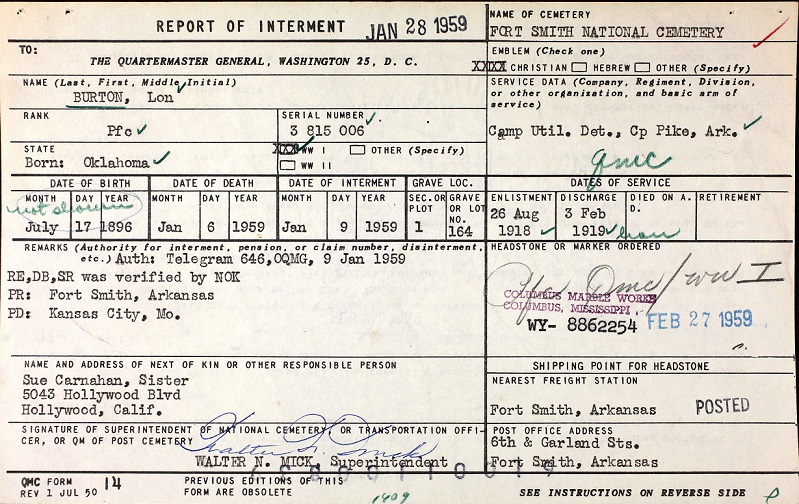 REPORT OF INTERMENT
JAN 28 1959
NAME OF CEMETERY
FORT SMITH NATIONAL CEMETERY
TO:
THE QUARTERMASTER GENERAL, WASHINGTON 25, D. C.
EMBLEM (Check one)
XXXX CHRISTIAN HEBREW OTHER (Specify)
NAME (Last, First, Middle Initial)
BURTON, Lon
SERVICE DATA (Company, Regiment, Division, or other organization, and basic arm of service)
Camp Util. Det., Cp Pike, Ark.
qmc
RANK
Pfc
SERIAL NUMBER
3 815 006
STATE
Born: Oklahoma
XXX WW I OTHER (Specify)
WW II
DATE OF BIRTH
MONTH DAY YEAR
not shown
July 17 1896
DATE OF DEATH
MONTH DAY YEAR
Jan 6 1959
DATE OF INTERMENT
MONTH DAY YEAR
Jan 9 1959
GRAVE LOC.
SEC. OR PLOT
1
GRAVE OR LOT NO.
164
DATES OF SERVICE
ENLISTMENT
26 Aug
1918
DISCHARGE
3 Feb
1919
hon
DIED ON A. D.
RETIREMENT
REMARKS (Authority for interment, pension, or claim number, disinterment, etc.) Auth: Telegram 646, OQMG, 9 Jan 1959
RE,DB,SR was verified by NOK
PR: Fort Smith, Arkansas
PD: Kansas City, Mo.
HEADSTONE OR MARKER ORDERED
Pfc Qmc/WW I
COLUMBUS MARBLE WORKS
COLUMBUS, MISSISSIPPI
WY- 8862254 FEB 27 1959
NAME AND ADDRESS OF NEXT OF KIN OR OTHER RESPONSIBLE PERSON
Sue Carnahan, Sister
5043 Hollywood Blvd
Hollywood, Calif.
SHIPPING POINT FOR HEADSTONE
NEAREST FREIGHT STATION
Fort Smith, Arkansas
POSTED
SIGNATURE OF SUPERINTENDENT OF NATIONAL CEMETERY, OR TRANSPORTATION OFFI-
CER, OR QM OF POST CEMETERY
Walter N. Mick
WALTER N. MICK, Superintendent
POST OFFICE ADDRESS
6th & Garland Sts.
Fort Smith, Arkansas
QMC FORM 14
REV 1 JUL 50
PREVIOUS EDITIONS OF THIS
FORM ARE OBSOLETE
1409
SEE INSTRUCTIONS ON REVERSE SIDE